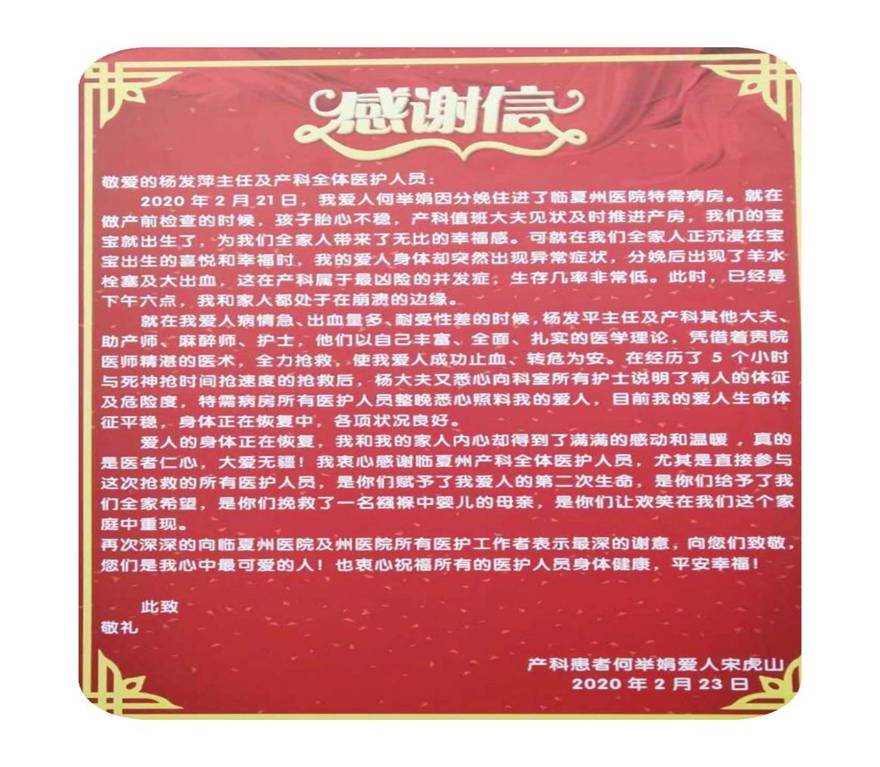 感谢信
敬爱的杨发萍主任及产科全体医护人员：
2020年2月21日，我爱人何举娟因分娩住进了临夏州医院特需病房。就在
做产前检查的时候，孩子胎心不稳，产科值班大夫见状及时推进产房，我们的宝
宝就出生了，为我们全家人带来了无比的幸福感。可就在我们全家人正沉浸在宝
宝出生的喜悦和幸福时，我的爱人身体却突然出现异常症状，分娩后出现了羊水
栓塞及大出血，这在产科属于最凶险的并发症，生存几率非常低。此时，已经是
下午六点，我和家人都处于在崩溃的边缘。
就在我爱人病情急、出血量多、耐受性差的时候，杨发平主任及产科其他大夫、
助产师、麻醉师、护士，他们以自己丰富、全面、扎实的医学理论，凭借着贵院
医师精湛的医术，全力抢救，使我爱人成功止血、转危为安。在经历了5个小时
与死神抢时间抢速度的抢救后，杨大夫又悉心向科室所有护士说明了病人的体征
及危险度，特需病房所有医护人员整晚悉心照料我的爱人，目前我的爱人生命体
征平稳，身体正在恢复中，各项状况良好。
爱人的身体正在恢复，我和我的家人内心却得到了满满的感动和温暖，真的
是医者仁心，大爱无疆！我衷心感谢临夏州产科全体医护人员，尤其是直接参与
这次抢救的所有医护人员，是你们赋予了我爱人的第二次生命，是你们给予了我
们全家希望，是你们挽救了一名襁褓中婴儿的母亲，是你们让欢笑在我们这个家
庭中重现。
再次深深的向临夏州医院及州医院所有医护工作者表示最深的谢意，向您们致敬，
您们是我心中最可爱的人！也衷心祝福所有的医护人员身体健康，平安幸福！
此致
敬礼
产科患者何举娟爱人宋虎山
2020年2月23日